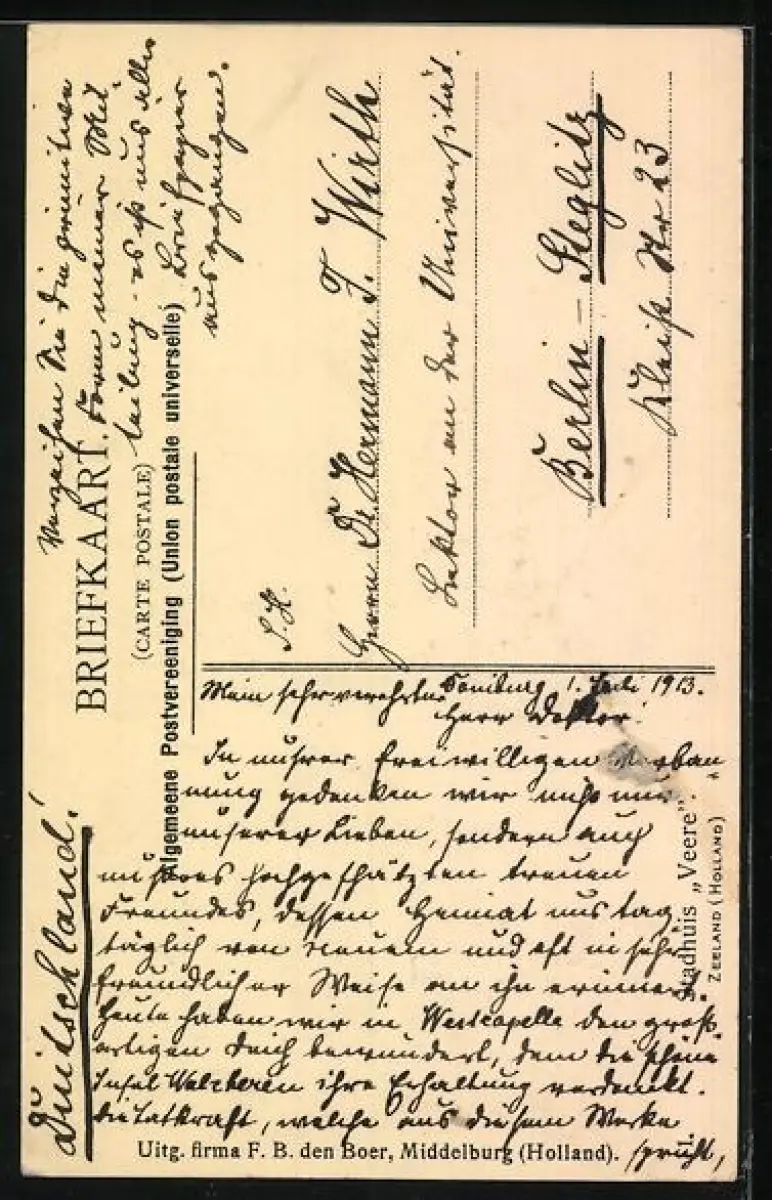 BRIEFKAART.
(CARTE POSTALE)
Algemeene Postvereeniging (Union postale universelle)
Verzeihen Sie die primitive
Form meiner Mit-
teilung - es ist uns alles
Briefpapier
ausgegangen.
S. H.
Herrn Dr. Hermann F. Wirth
Lektor an der Universität.
Berlin - Steglitz
Kleist Str 23
Duitschland!
Domburg 1. Juli 1913.
Mein sehr verehrter
Herr Doktor!
In unsrer freiwilligen Verban-
nung gedenken wir nicht nur
unserer Lieben, sondern auch
unseres hochgeschätzten treuen
Freundes, dessen Heimat uns tag
täglich von neuem und oft in sehr
freundlicher Weise an ihn erinnert.
Heute haben wir in Westcapelle den groß-
artigen Deich bewundert, dem die schöne
Insel Walcheren ihre Erhaltung verdankt.
Die Tatkraft, welche aus diesem Werke
spricht,
Stadhuis „Veere".
ZEELAND (HOLLAND)
Uitg. firma F. B. den Boer, Middelburg (Holland).